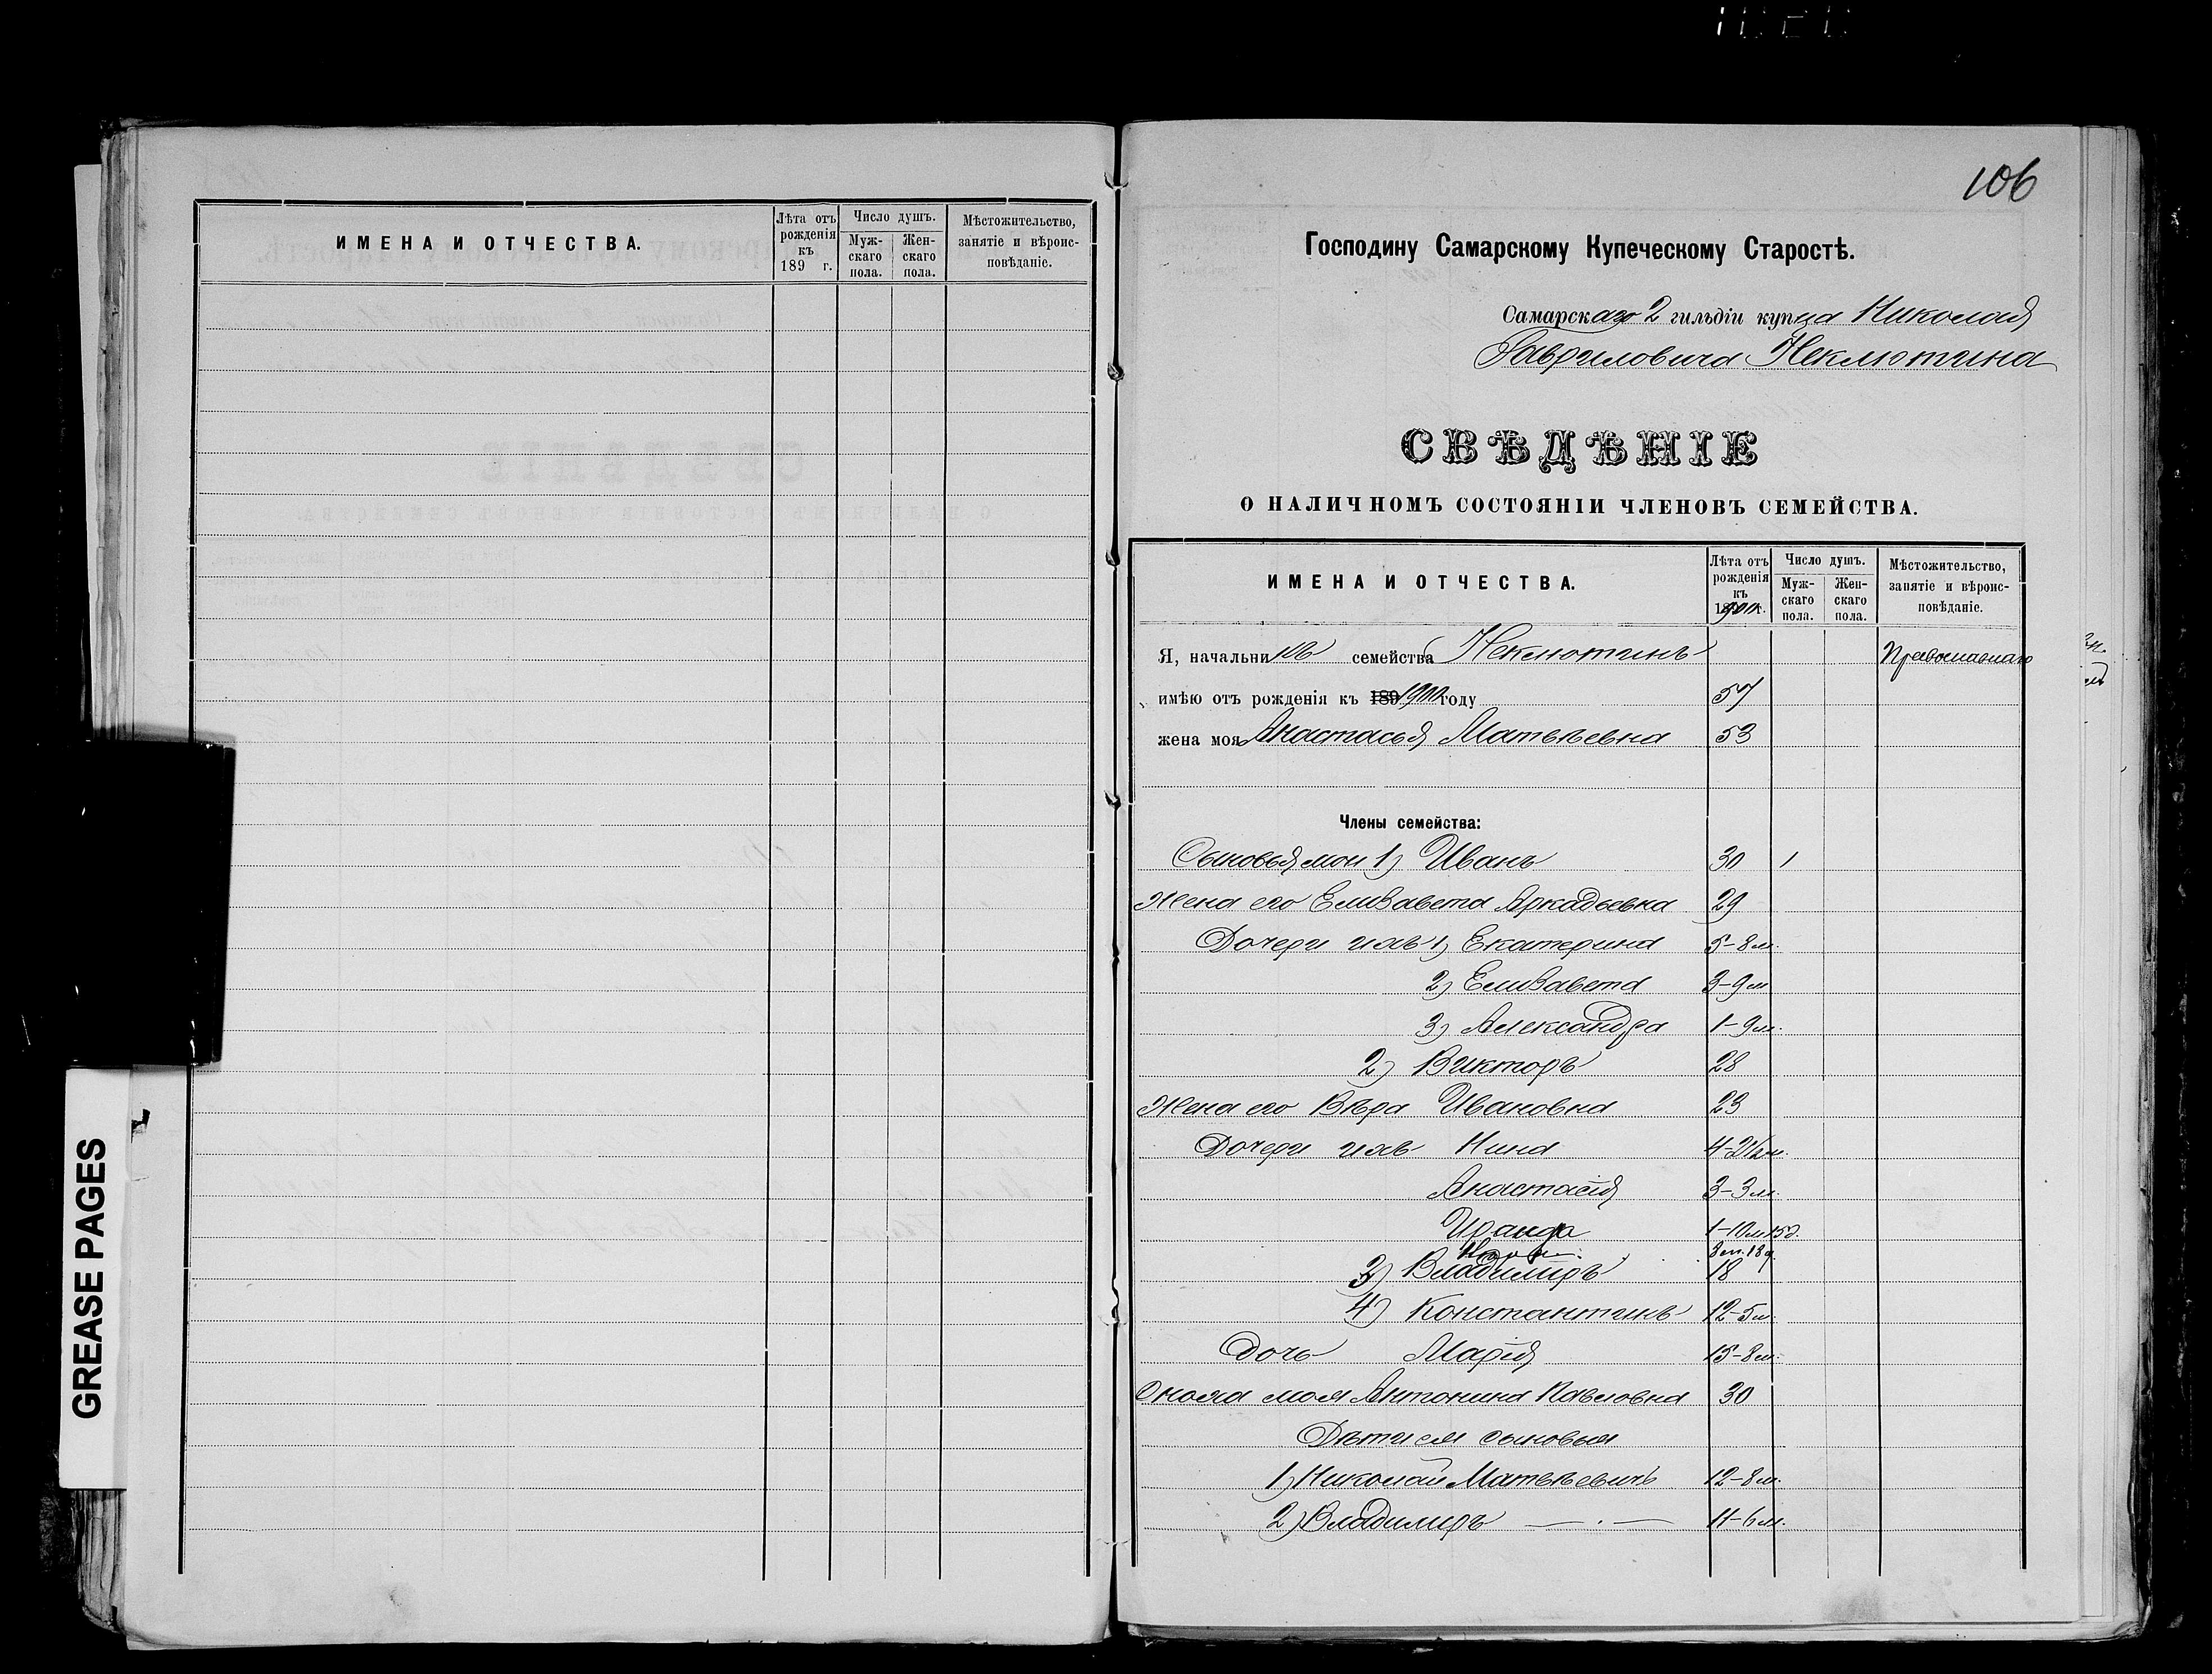 ИМЕНА И ОТЧЕСТВА.
Лѣта отъ рожденія къ 189 г.
Число душъ.
Мужскаго пола.
Женскаго пола.
Мѣстожительство, занятіе и вѣроисповѣданіе.
GREASE PAGES
106
Господину Самарскому Купеческому Старостѣ.
Самарскаго 2 гильдіи купца Николая
Гавриловича Неклютина
СВѢДѢНІЕ
О НАЛИЧНОМЪ СОСТОЯНІИ ЧЛЕНОВЪ СЕМЕЙСТВА.
ИМЕНА И ОТЧЕСТВА.
Лѣта отъ рожденія къ
Число душъ.
Мужскаго пола.
Женскаго пола.
Мѣстожительство, занятіе и вѣроисповѣданіе.
Я, начальникъ семейства Неклютинъ Православнаго
имѣю отъ рожденія къ году 57
жена моя Анастасья Матвѣевна 53
Члены семейства:
Сыновья мои 1) Иванъ 30 1
Жена его Елизавета Аркадьевна 29
Дочери ихъ 1) Екатерина 5-8 м.
2) Елизавета 3-9 м
3) Александра 1-9 м.
2) Викторъ 28
Жена его Вѣра Ивановна 23
Дочери ихъ Нина
Анастасія 3-3 м.
Ираида 1-10 м 15 д.
8 м. 18 д
3) Владиміръ 18
4) Константинъ 12-5 м.
Дочь Марія 15-8 м.
Сноха моя Антонина Павловна 30
Дѣти ея сыновья
1) Николай Матвѣевичъ 12-8 м.
2) Владимиръ — . — 11-6 м.